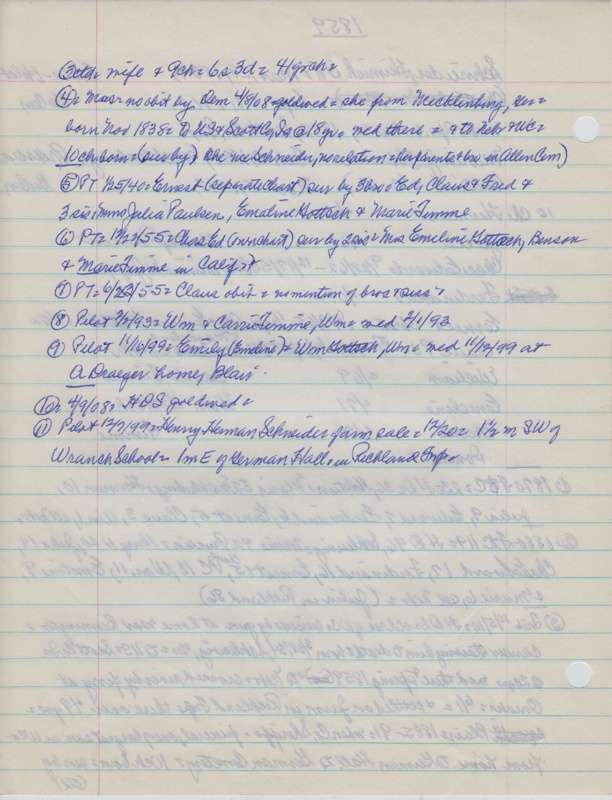 1859
③ctd= wife + 9ch= 6s 3d= 41grch=
④= Mas= no obit by Dem 4/9/08= goldwed= she from Mecklenburg, Ger=
born Nov 1838= to US + Scott Co, Ia @ 18yr= med there = + to Nebr + WC=
10ch born= (sur by) she nee Schneider, no relation= her parents + bro in Allen Cem)
⑤ PT 1/25/40= Ernest (separate chart) sur by 3 bro= Ed, Claus + Fred +
3 sis= Mmes Julia Paulsen, Emaline Gottsch + Marie Timme
⑥ PT= 12/22/55= Chas Ed (own chart) sur by 2 sis= Mrs Emeline Gottsch, Benson
+ Marie Timme in Calif=
⑦ PT= 6/23/55= Claus obit= no mention of bros + siss=
⑧ Pilot 2/2/93= Wm + Carrie Timme, Wm= med 2/1/93
⑨ Pilot 11/16/99= Emily (Emeline) + Wm Gottsch, Wm= med 11/12/99 at
A Draeger home, Blair.
⑩ 4/9/08= HDS goldwed=
⑪ Pilot 12/7/99= Henry Herman Schneider farm sale= 12/20= 1½ m SW of
Wranch School= 1m E of German Hall= in Richland Twp.